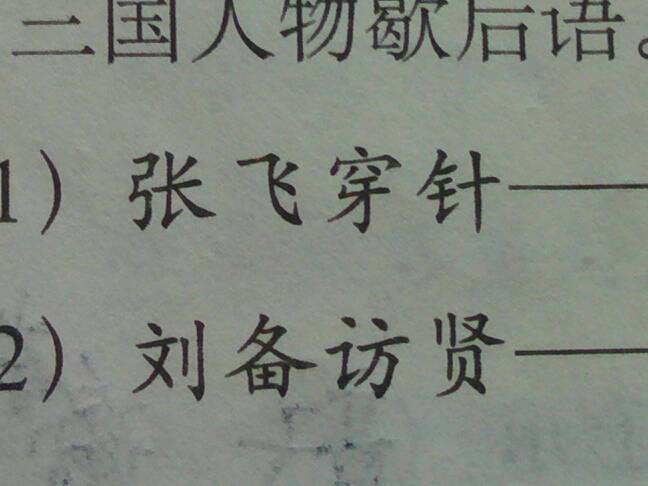 三国人物歇后语。
1）张飞穿针——
2）刘备访贤——